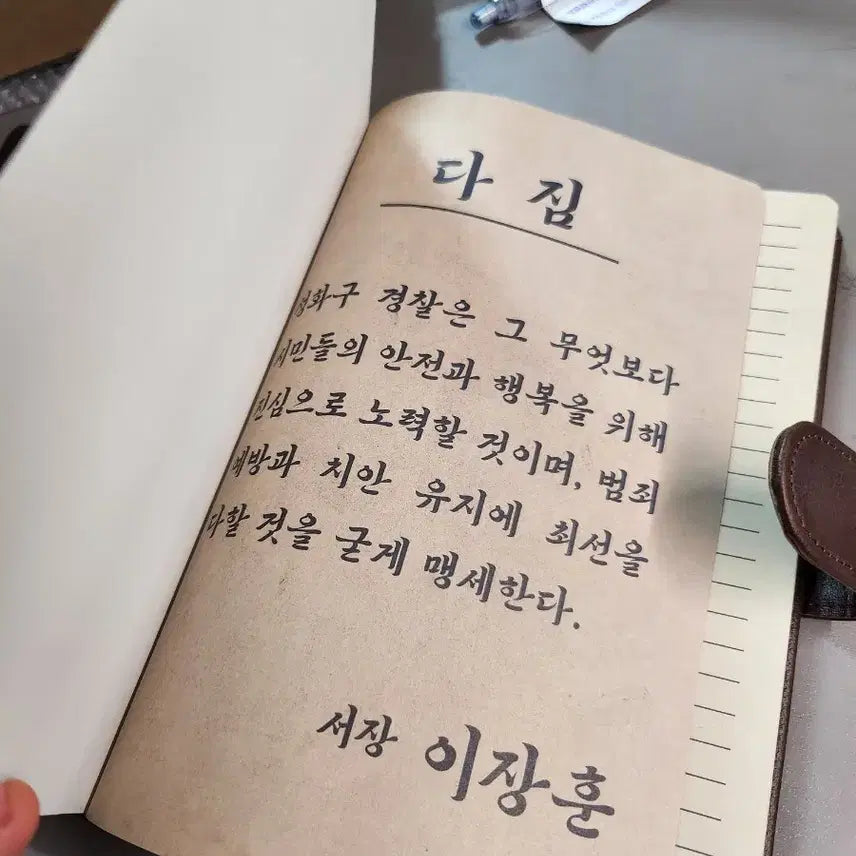 다짐
성화구 경찰은 그 무엇보다
시민들의 안전과 행복을 위해
진심으로 노력할 것이며, 범죄
예방과 치안 유지에 최선을
다할 것을 굳게 맹세한다.
서장 이장훈